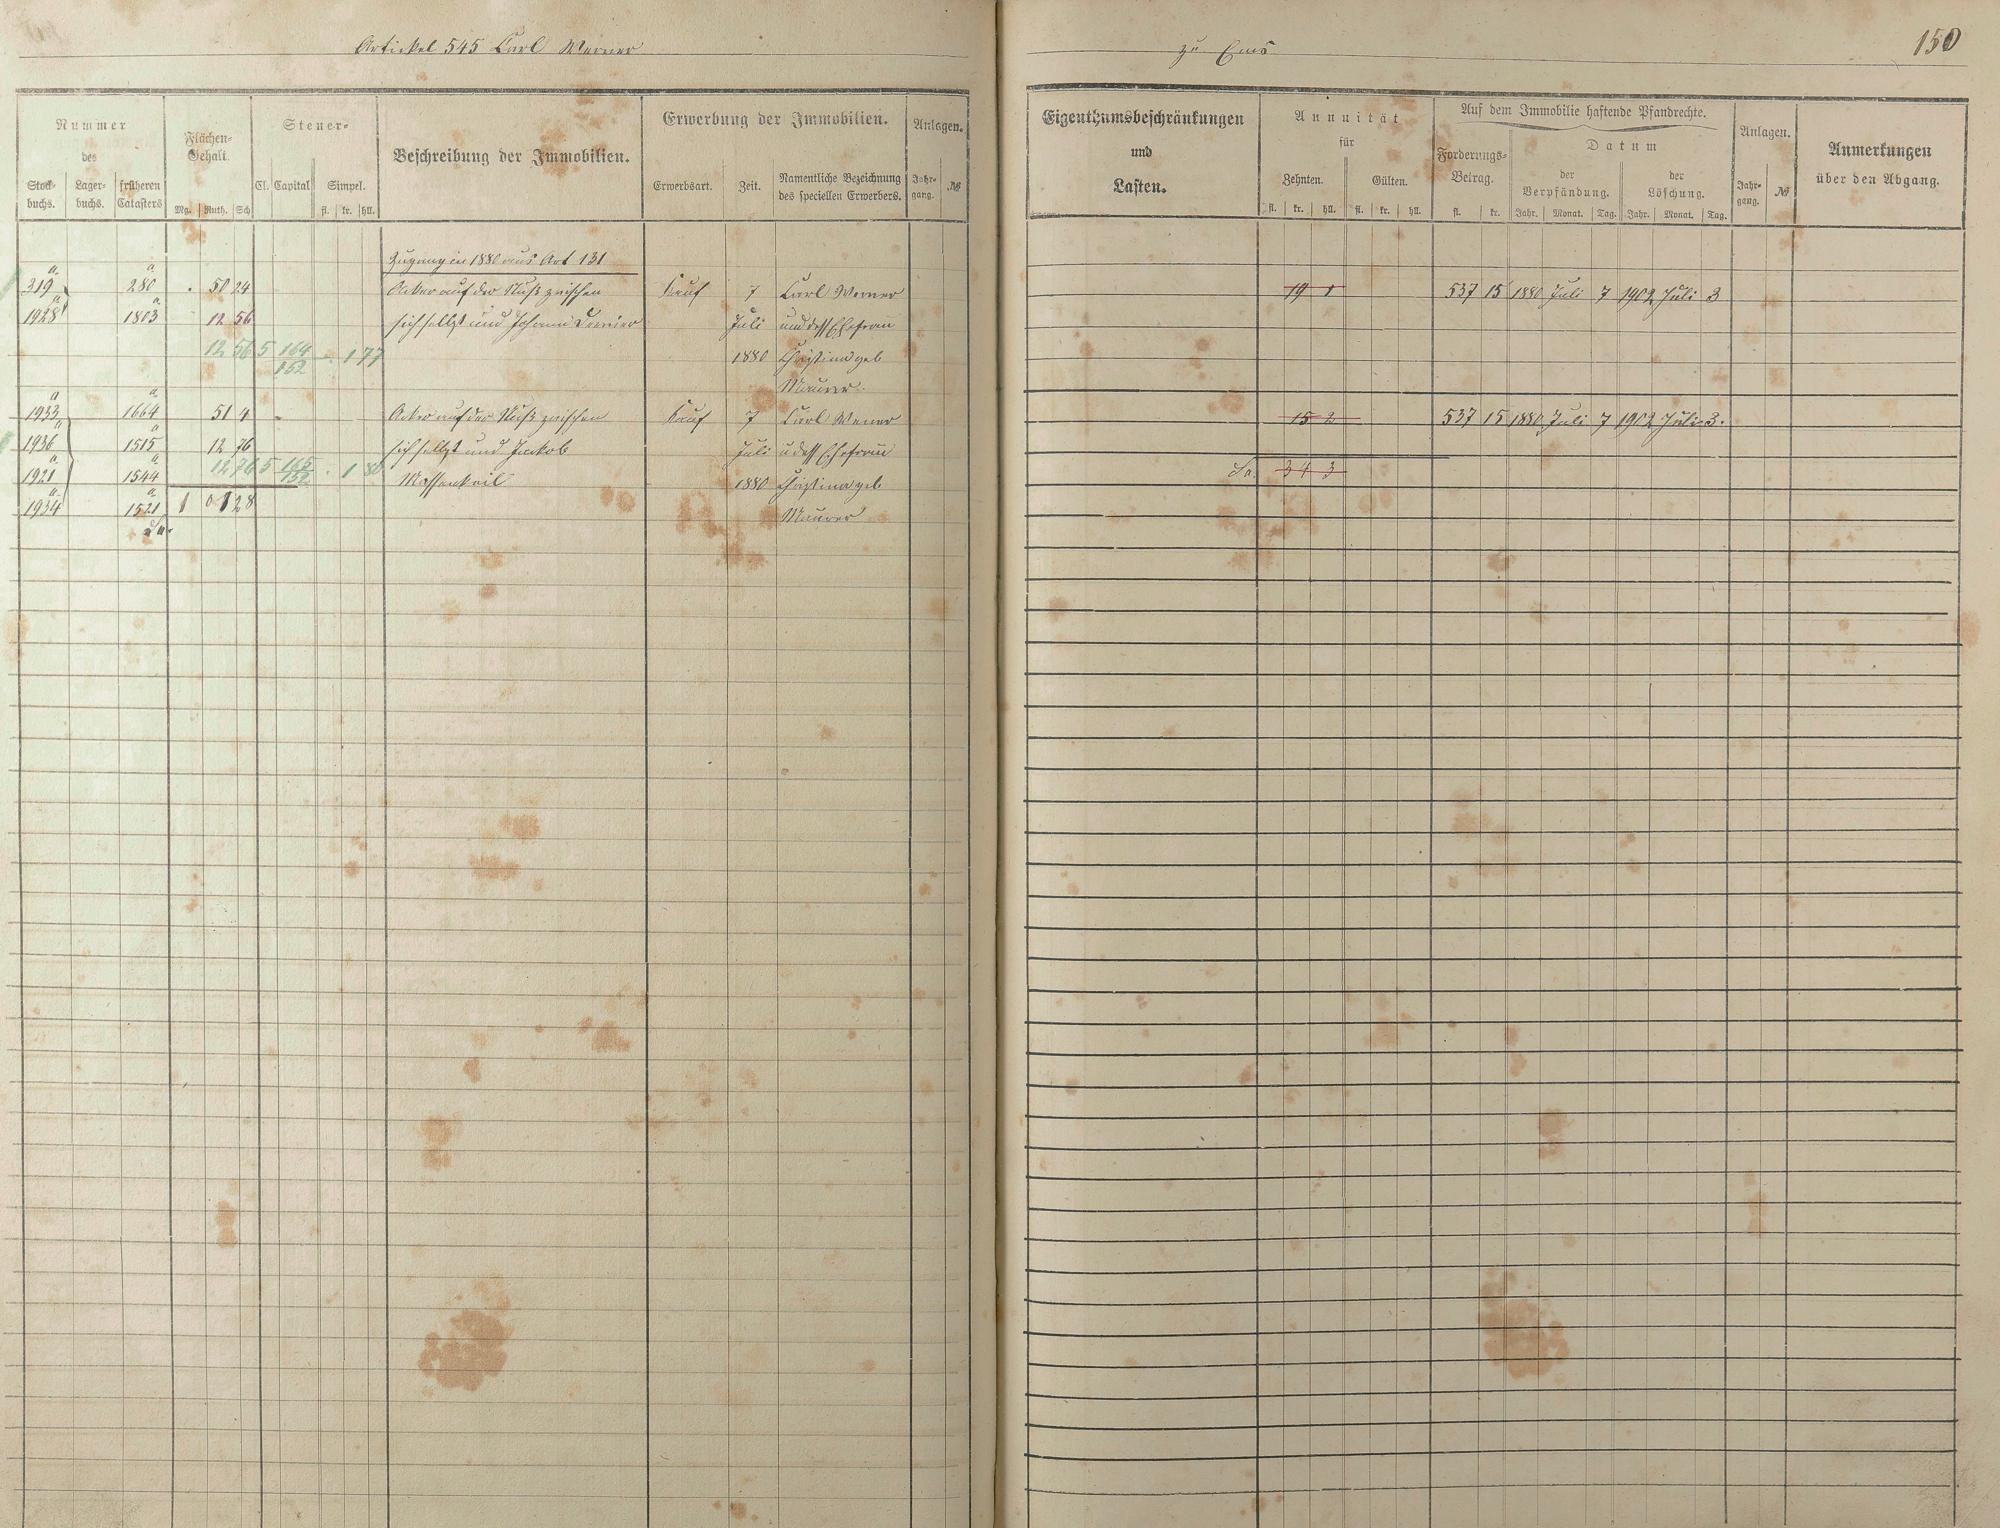 Artickel 545 Carl Werner
zu Ems
150
Nummer
des
Stock-
buchs.
Lager-
buchs.
früheren
Catasters
Flächen-
Gehalt.
Mg. Ruth. Sch
Steuer-
Cl. Capital Simpel.
fl. kr. hll.
Beschreibung der Immobilien.
Erwerbung der Immobilien.
Erwerbsart. Zeit.
Namentliche Bezeichnung
des speciellen Erwerbers.
Anlagen.
Jahr-
gang. №
Eigenthumsbeschränkungen
und
Lasten.
Annuität
für
Zehnten. Gülten.
fl. kr. hll. fl. kr. hll.
Auf dem Immobilie haftende Pfandrechte.
Forderungs-
Betrag.
fl. kr.
Datum
der
Verpfändung.
Jahr. Monat. Tag.
der
Löschung.
Jahr. Monat. Tag.
Anlagen.
Jahr-
gang. №
Anmerkungen
über den Abgang.
Zugang in 1880 aus Art 131
a a
319 280 50 24 Acker auf der zwischen Kauf 7 Carl Werner 19 1 537 15 1880 Juli 7 1902 Juli 3
a a
1928 1803 12 56 sich selbst und Johann Juli und dess Ehefrau
12 56 5 164 1 77 1880 Christina geb
152
Maurer
a a
1933 1664 51 4 Acker auf der zwischen Kauf 7 Carl Werner 15 2 537 15 1880 Juli 7 1902 Juli 3.
a a
1936 1515 12 76 sich selbst und Jackob Juli u dess Ehefrau
12 76 5 165 1 80
152
a a
1921 1544 Massenkeil 1880 Christina geb Sa. 34 3
a a
1934 1521 1 0 1 28 Maurer
Sa.